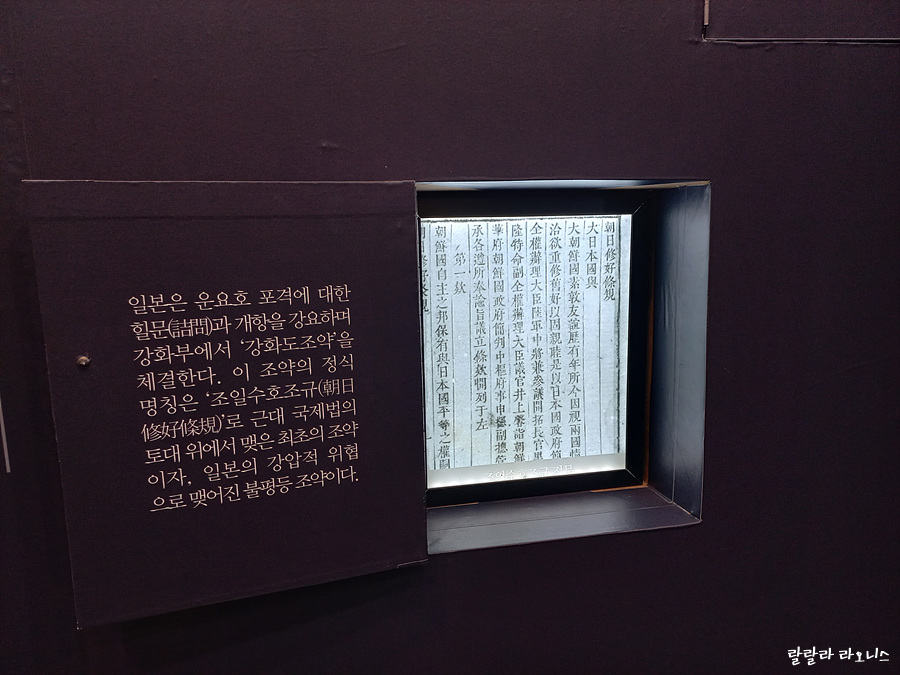 일본은 운요호 포격에 대한
힐문(詰問)과 개항을 강요하며
강화부에서 ‘강화도조약’을
체결한다. 이 조약의 정식
명칭은 ‘조일수호조규(朝日
修好條規)’로 근대 국제법의
토대 위에서 맺은 최초의 조약
이자, 일본의 강압적 위협
으로 맺어진 불평등 조약이다.
朝日修好條規
大日本國與
大朝鮮國素敦友誼歷有年所今因視兩國情
洽欲重修舊好以固親睦是以日本國政府簡
全權辦理大臣陸軍中將兼參議開拓長官黑
隆特命副全權辦理大臣議官井上馨詣朝鮮
華府朝鮮國政府簡判中樞府事申櫶副摠管
承各遵所奉諭旨議立條款開列于左
第一款
朝鮮國自主之邦保有與日本國平等之權嗣
랄랄라 라오니스